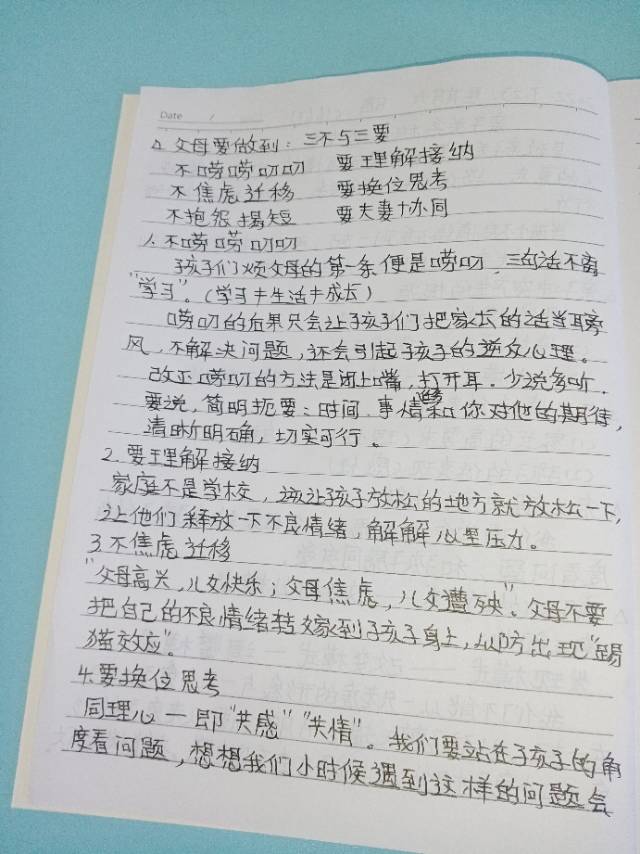 Date /
△ 父母要做到：三不与三要
不唠唠叨叨 要理解接纳
不焦虑迁移 要换位思考
不抱怨揭短 要夫妻协同
1. 不唠唠叨叨
孩子们烦父母的第一条便是唠叨，三句话不离
"学习"。（学习≠生活≠成长）
唠叨的后果只会让孩子们把家长的话当耳旁
风，不解决问题，还会引起孩子的逆反心理。
改正唠叨的方法是闭上嘴，打开耳。少说多听。
要说，简明扼要：时间、事情和你对他的期待，
清晰明确，切实可行。
2. 要理解接纳
家庭不是学校，该让孩子放松的地方就放松一下，
让他们释放一下不良情绪，解解心里压力。
3. 不焦虑迁移
"父母高兴，儿女快乐；父母焦虑，儿女遭殃"。父母不要
把自己的不良情绪转嫁到孩子身上，以防出现"踢
猫效应"。
4. 要换位思考
同理心一即"共感""共情"。我们要站在孩子的角
度看问题，想想我们小时候遇到这样的问题会